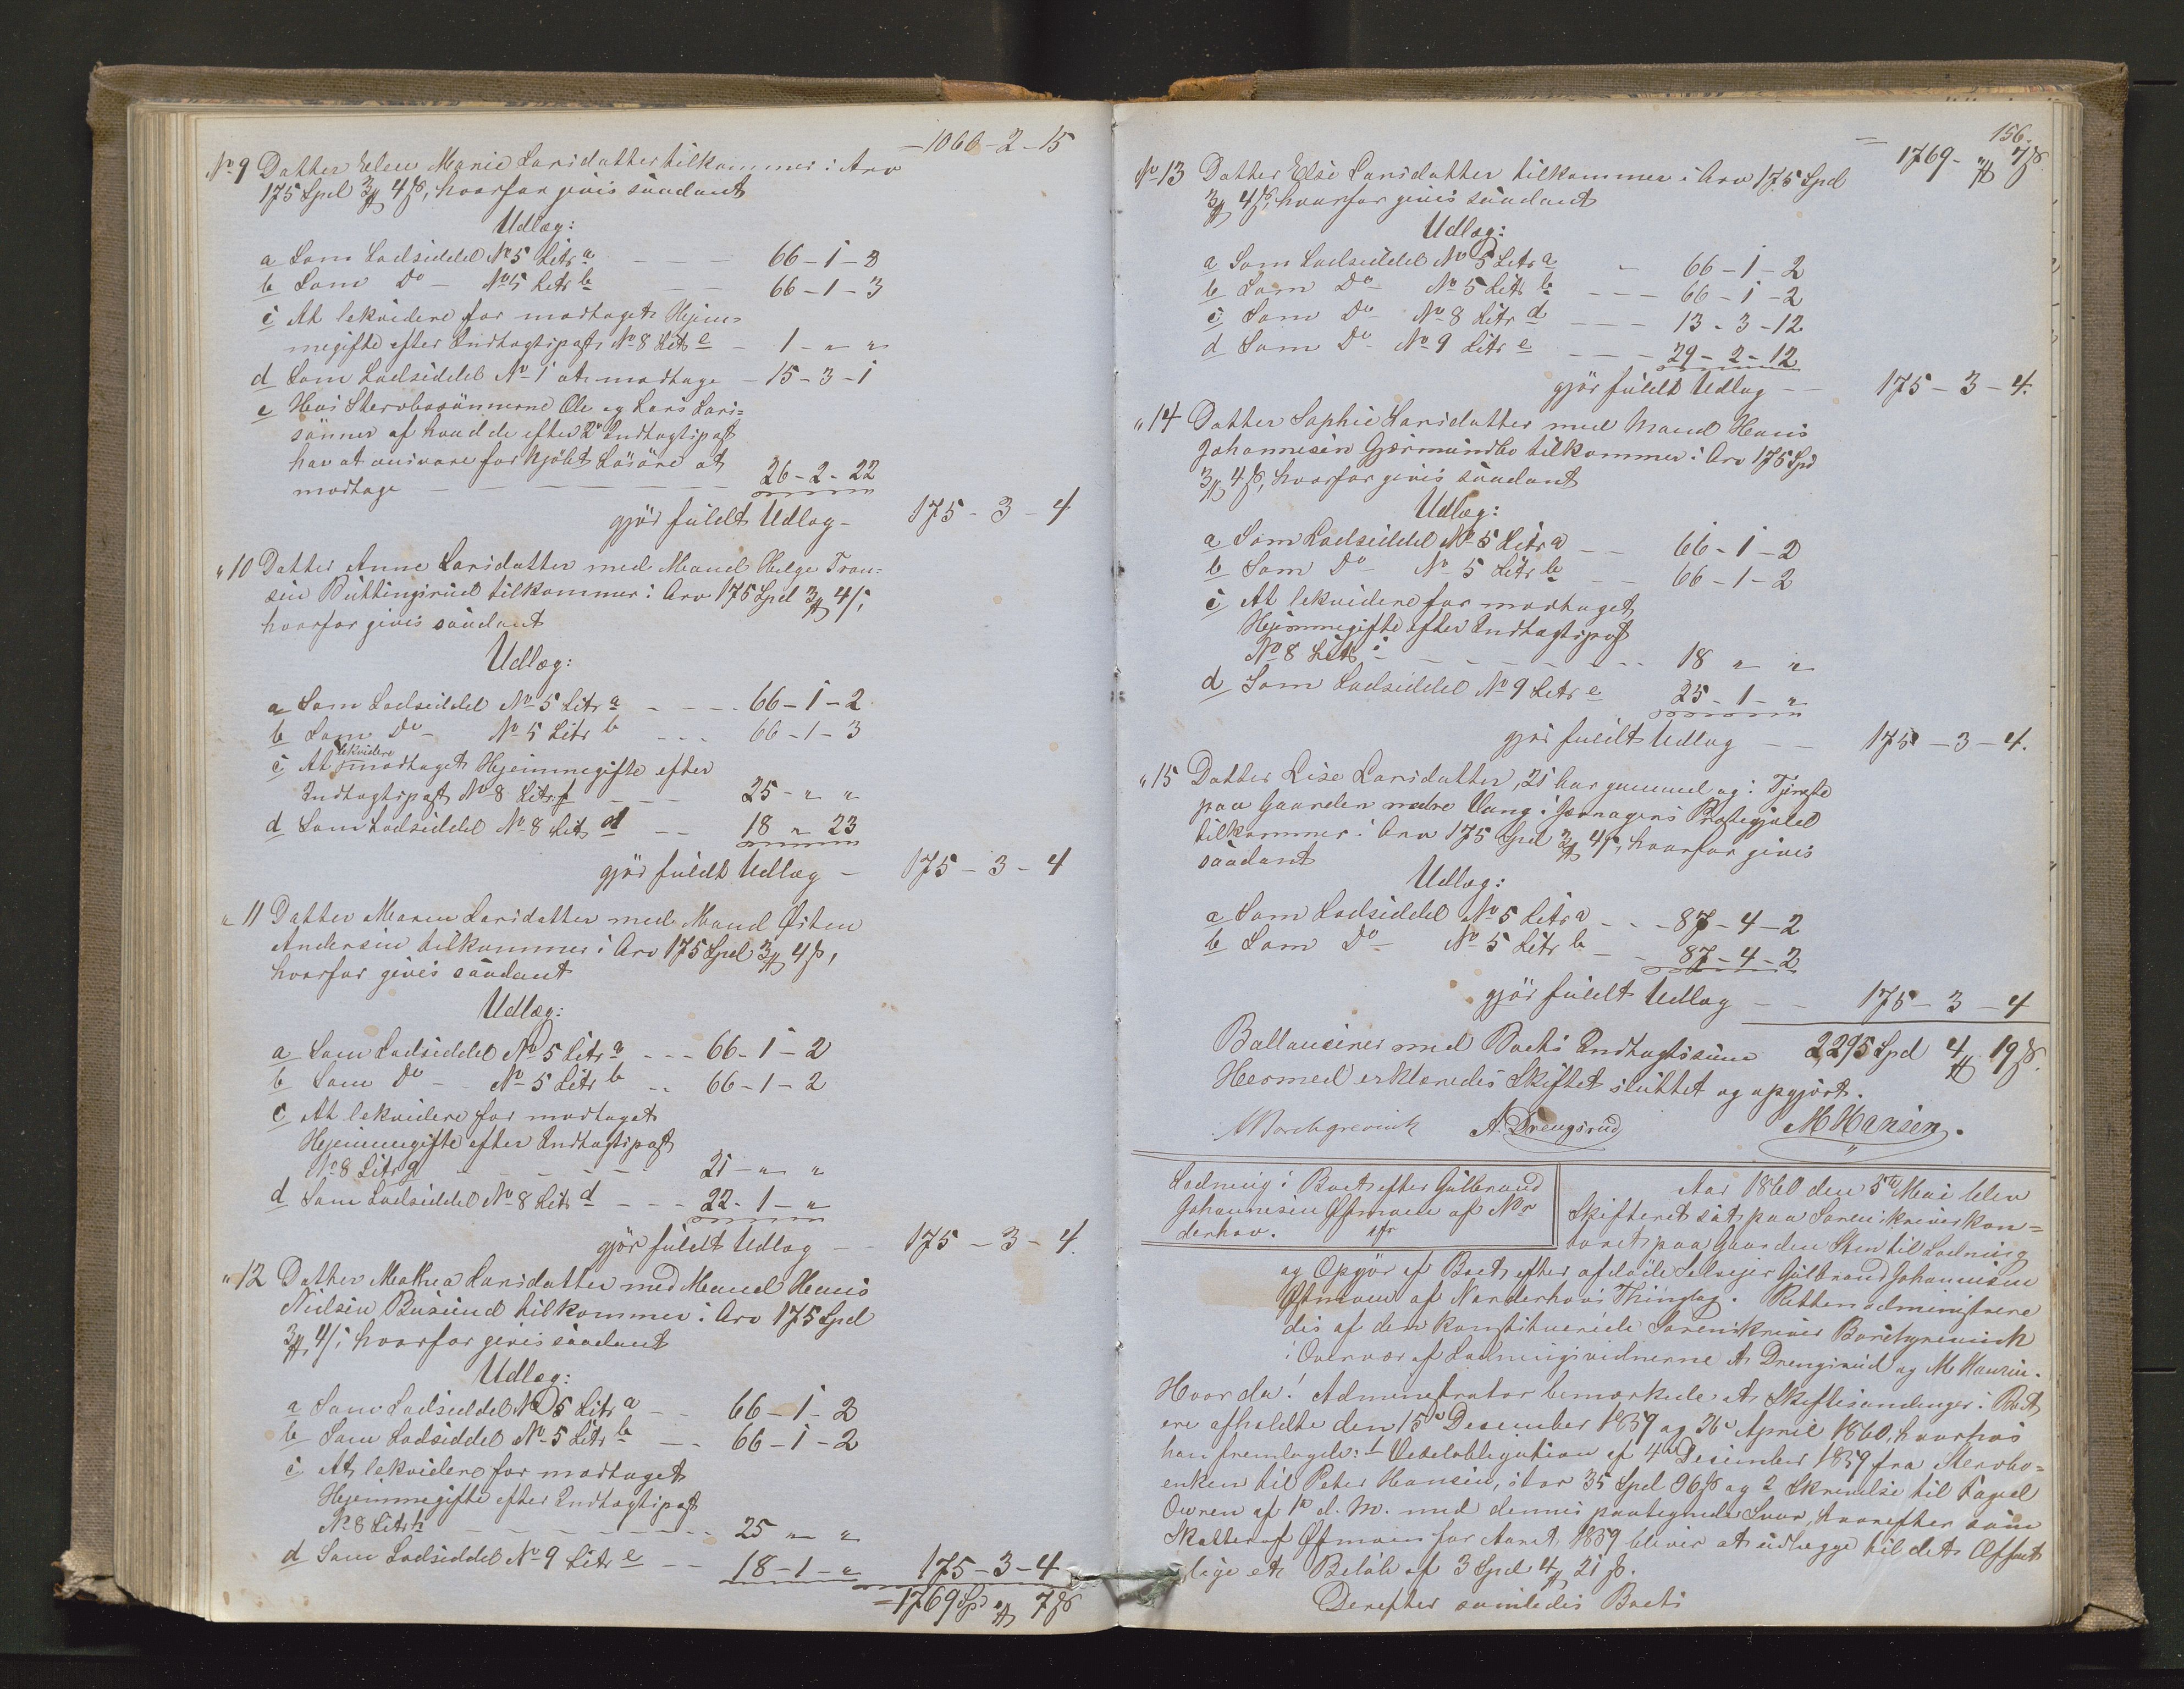 – 1066 – 2 – 15
No 9 Datter Elen Marie Larsdatter tilkommer i Arv
175 Spd 3 ℔ 4 ß, hvorfor gives saadant
Udlæg:
a Som Lodseddel No 5 Litr a – – – 66 – 1 – 3
b Som Do – No 5 Litr b – – 66 – 1 – 3
c At lekvidere for modtaget Hjem=
megifte efter Indtægtspost No 8 Litr e – 1 – " "
d Som Lodseddel No 1 at modtage – 15 – 3 – 1
e Hos Stervbosønnerne Ole og Lars Lars=
sønner af hvad de efter 2de Indtægtspost
har at ansvare for kjöbt Lösöre at
modtage – – – – – 26 – 2 – 22
gjör fuldt Udlæg – 175 – 3 – 4
" 10 Datter Anne Larsdatter med Mand Helge Tron=
sen Büttingsrud tilkommer i Arv 175 Spd 3 ℔ 4 ß,
hvorfor gives saadant
Udlæg:
a Som Lodseddel No 5 Litr a – – – 66 – 1 – 2
b Som Do – No 5 Litr b – – – 66 – 1 – 3
c At lekvidere modtaget Hjemmegifte efter
Indtægtspost No 8 Litr f – – – 25 – " "
d Som Lodseddel No 8 Litr d – – 18 " 23
gjör fuldt Udlæg – 175 – 3 – 4
" 11 Datter Maren Larsdatter med Mand Østen
Andersen tilkommer i Arv 175 Spd 3 ℔ 4 ß,
hvorfor gives saadant
Udlæg:
a Som Lodseddel No 5 Litr a – – – 66 – 1 – 2
b Som Do – No 5 Litr b – – 66 – 1 – 2
c At lekvidere for modtaget
Hjemmegifte efter Indtægtspost
No 8 Litr g – – – – – 21 – " "
d Som Lodseddel No 8 Litr d – – – 22 – 1 – "
gjör fuldt Udlæg – 175 – 3 – 4.
" 12 Datter Mathea Larsdatter med Mand Hans
Nielsen Busund tilkommer i Arv 175 Spd
3 ℔ 4 ß, hvorfor gives saadant
Udlæg:
a Som Lodseddel No 5 Litr a – – 66 – 1 – 2
b Som Lodseddel No 5 Litr b – – 66 – 1 – 2
c At lekvidere for modtaget
Hjemmegifte efter Indtægtspost
No 8 Litr h – – – – – – 25 " "
d Som Lodseddel No 9 Litr e – – 18 – 1 – " 175 – 3 – 4
= 1769 Spd " ℔ 7 ß
156.
= 1769 – " ℔ 7 ß.
No 13 Datter Else Larsdatter tilkommer i Arv 175 Spd
3 ℔ 4 ß, hvorfor gives saadant
Udlæg:
a Som Lodseddel No 5 Litr a – 66 – 1 – 2
b Som Do No 5 Litr b – – – 66 – 1 – 2
c Som Do No 8 Litr d – – – 13 – 3 – 12
d Som Do No 9 Litr e – – – 29 – 2 – 12
gjör fuldt Udlæg – – 175 – 3 – 4.
" 14 Datter Sophie Larsdatter med Mand Hans
Johannesen Gjermundbo tilkommer i Arv 175 Spd
3 ℔ 4 ß, hvorfor gives saadant
Udlæg:
a Som Lodseddel No 5 Litr a – – 66 – 1 – 2
b Som Do – No 5 Litr b – – 66 – 1 – 2
c At lekvidere for modtaget
Hjemmegifte efter Indtægtspost
No 8 Litr i – – – – – – 18 " "
d Som Lodseddel No 9 Litr e 25 – 1 – "
gjör fuldt Udlæg – – 175 – 3 – 4.
" 15 Datter Lise Larsdatter, 21 Aar gammel og i Tjeneste
paa Gaarden nedre Vang i Jevnagers Prestegjæld
tilkommer i Arv 175 Spd 3 ℔ 4 ß, hvorfor gives
saadant
Udlæg:
a Som Lodseddel No 5 Litr a – – – 87 – 4 – 2
b Som Do – No 5 Litr b – – 87 – 4 – 2
gjör fuldt Udlæg – – 175 – 3 – 4
Ballanserer med Boets Indtægtssum 2295 Spd 4 ℔ 19 ß.
Hermed erklæredes Skiftet sluttet og opgjort.
Borchgrevink A. Drengsrud M Hansen.
Lodning i Boet efter Gulbrand
Johannesen Østmoen af Nor
derhov.
Aar 1860 den 5te Mai blev
Skifteret sat paa Sorenskriverkon=
toret paa Gaarden Sten til Lodning
og Opgjör af Boet efter afdöde Selveier Gulbrand Johannesen
Østmoen af Norderhovs Thinglag. Retten administrere
des af den konstituerede Sorenskriver Borchgrevink
i Overvær af Lodningsvidnerne A. Drengsrud og M. Hansen.
Hvor da! Administrator bemærkede at Skiftesamlinger i Boet
ere afholdte den 15de December 1859 og 26de April 1860, hvorhos
han fremlagde: 1 Vexelobligation af 4de December 1859 fra Stervbo=
enken til Peter Hansen, stor 35 Spd 96 ß og 2 Skrivelse til Foged
Owren af 1te d. M. med dennes paategnede Svar, hvorefter som
Skatter af Østmoen for Aaret 1859 bliver at udlægge til det Offent
lige et Belöb af 3 Spd 4 ℔ 21 ß.
Derefter samledes Boets